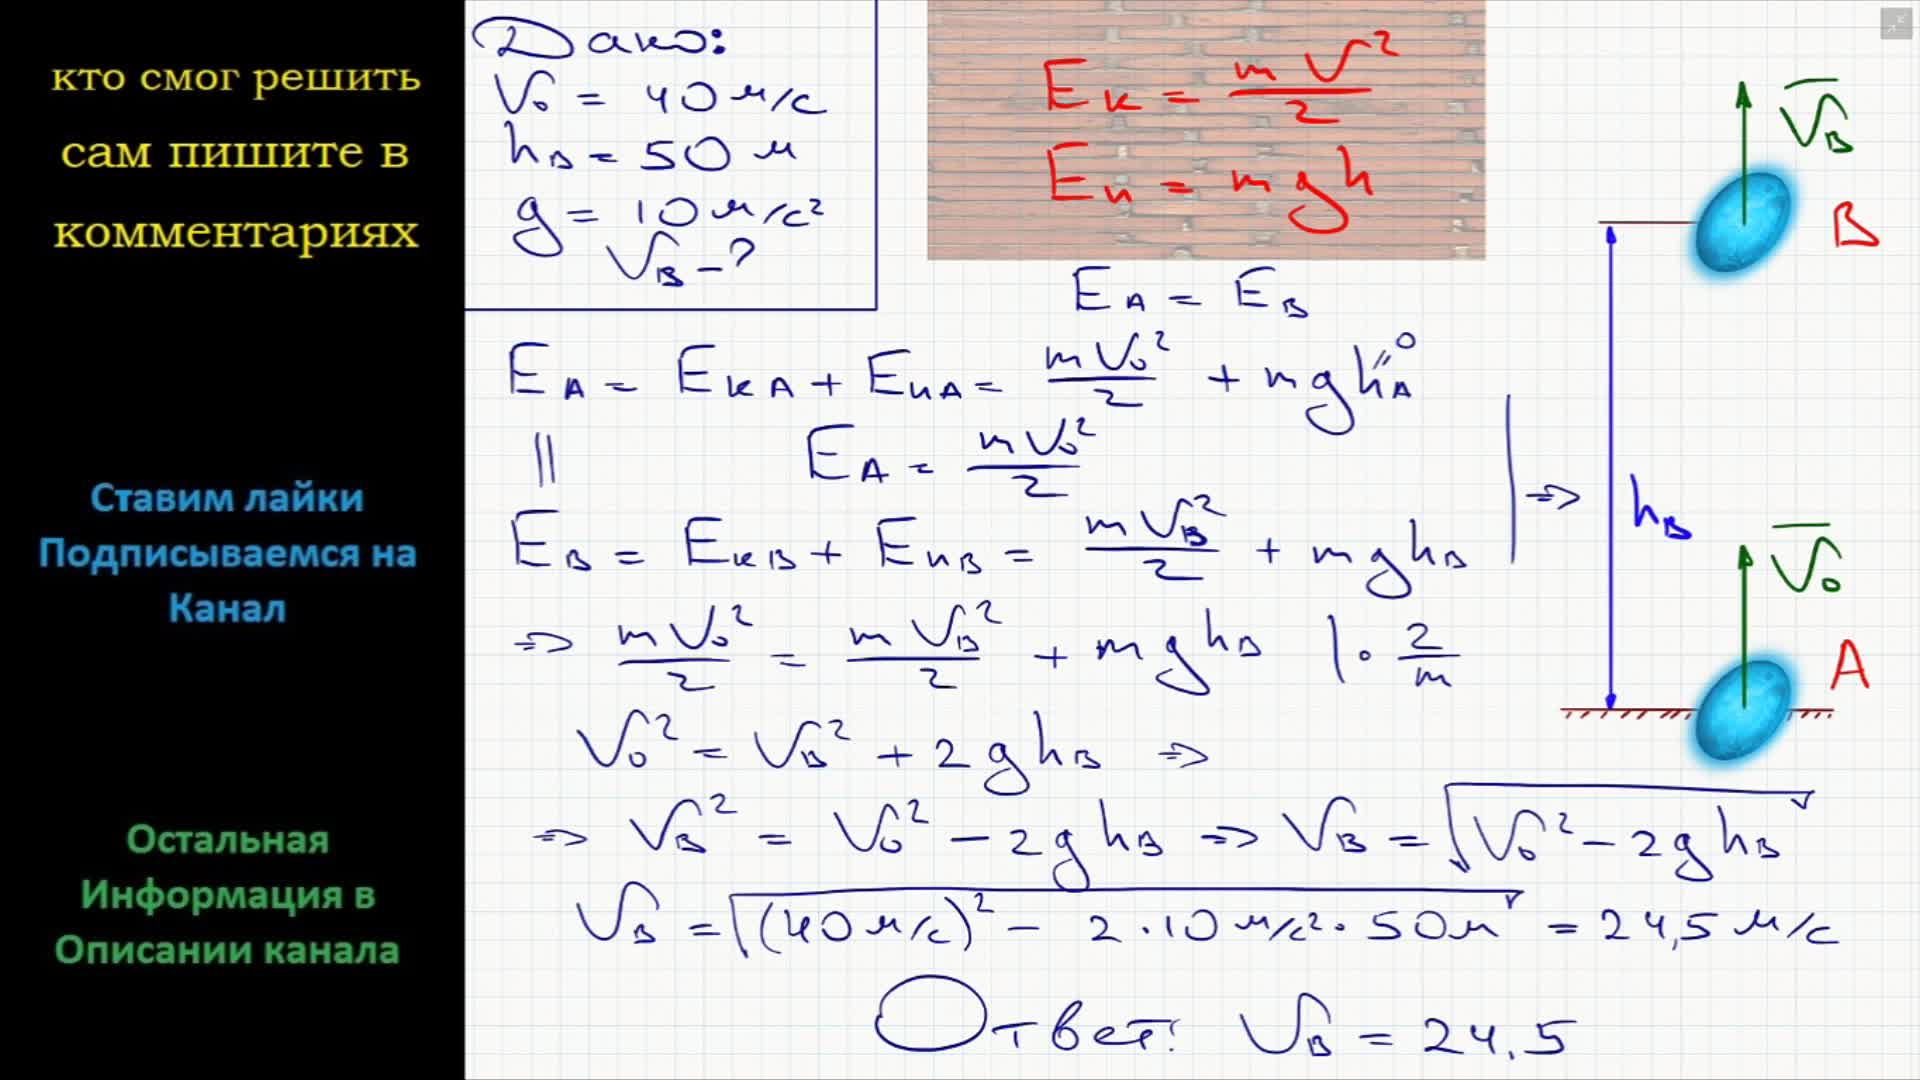 кто смог решить
сам пишите в
комментариях
Ставим лайки
Подписываемся на
Канал
Остальная
Информация в
Описании канала
Дано:
V₀ = 40 м/с
hв = 50 м
g = 10 м/с²
Vв - ?
Eк = mV²/2
Eп = mgh
EА = EВ
EА = EкА + EпА = mV₀²/2 + mghА = 0
||
EА = mV₀²/2
EВ = EкВ + EпВ = mVВ²/2 + mghВ
⇒
⇒ mV₀²/2 = mVВ²/2 + mghВ | · 2/m
V₀² = VВ² + 2ghВ ⇒
⇒ VВ² = V₀² - 2ghВ ⇒ VВ = √(V₀² - 2ghВ)
VВ = √((40 м/с)² - 2 · 10 м/с² · 50 м) = 24,5 м/с
Ответ: VВ = 24,5
V̅В
В
hВ
V̅₀
А